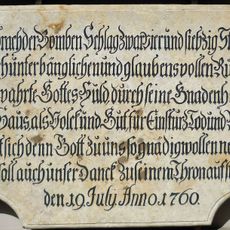 der Bomben Schlag zwar vier und siebzig
bänglichen und glaubens vollen
wahrte Gottes Huld durch seine Gnaden
Haus als Volck und Gut für Einsturtz Tod und
sich denn Gott zu uns so gnädig wollen
soll auch unser Danck zu seinem Thron
den 19 July Anno. 1760.